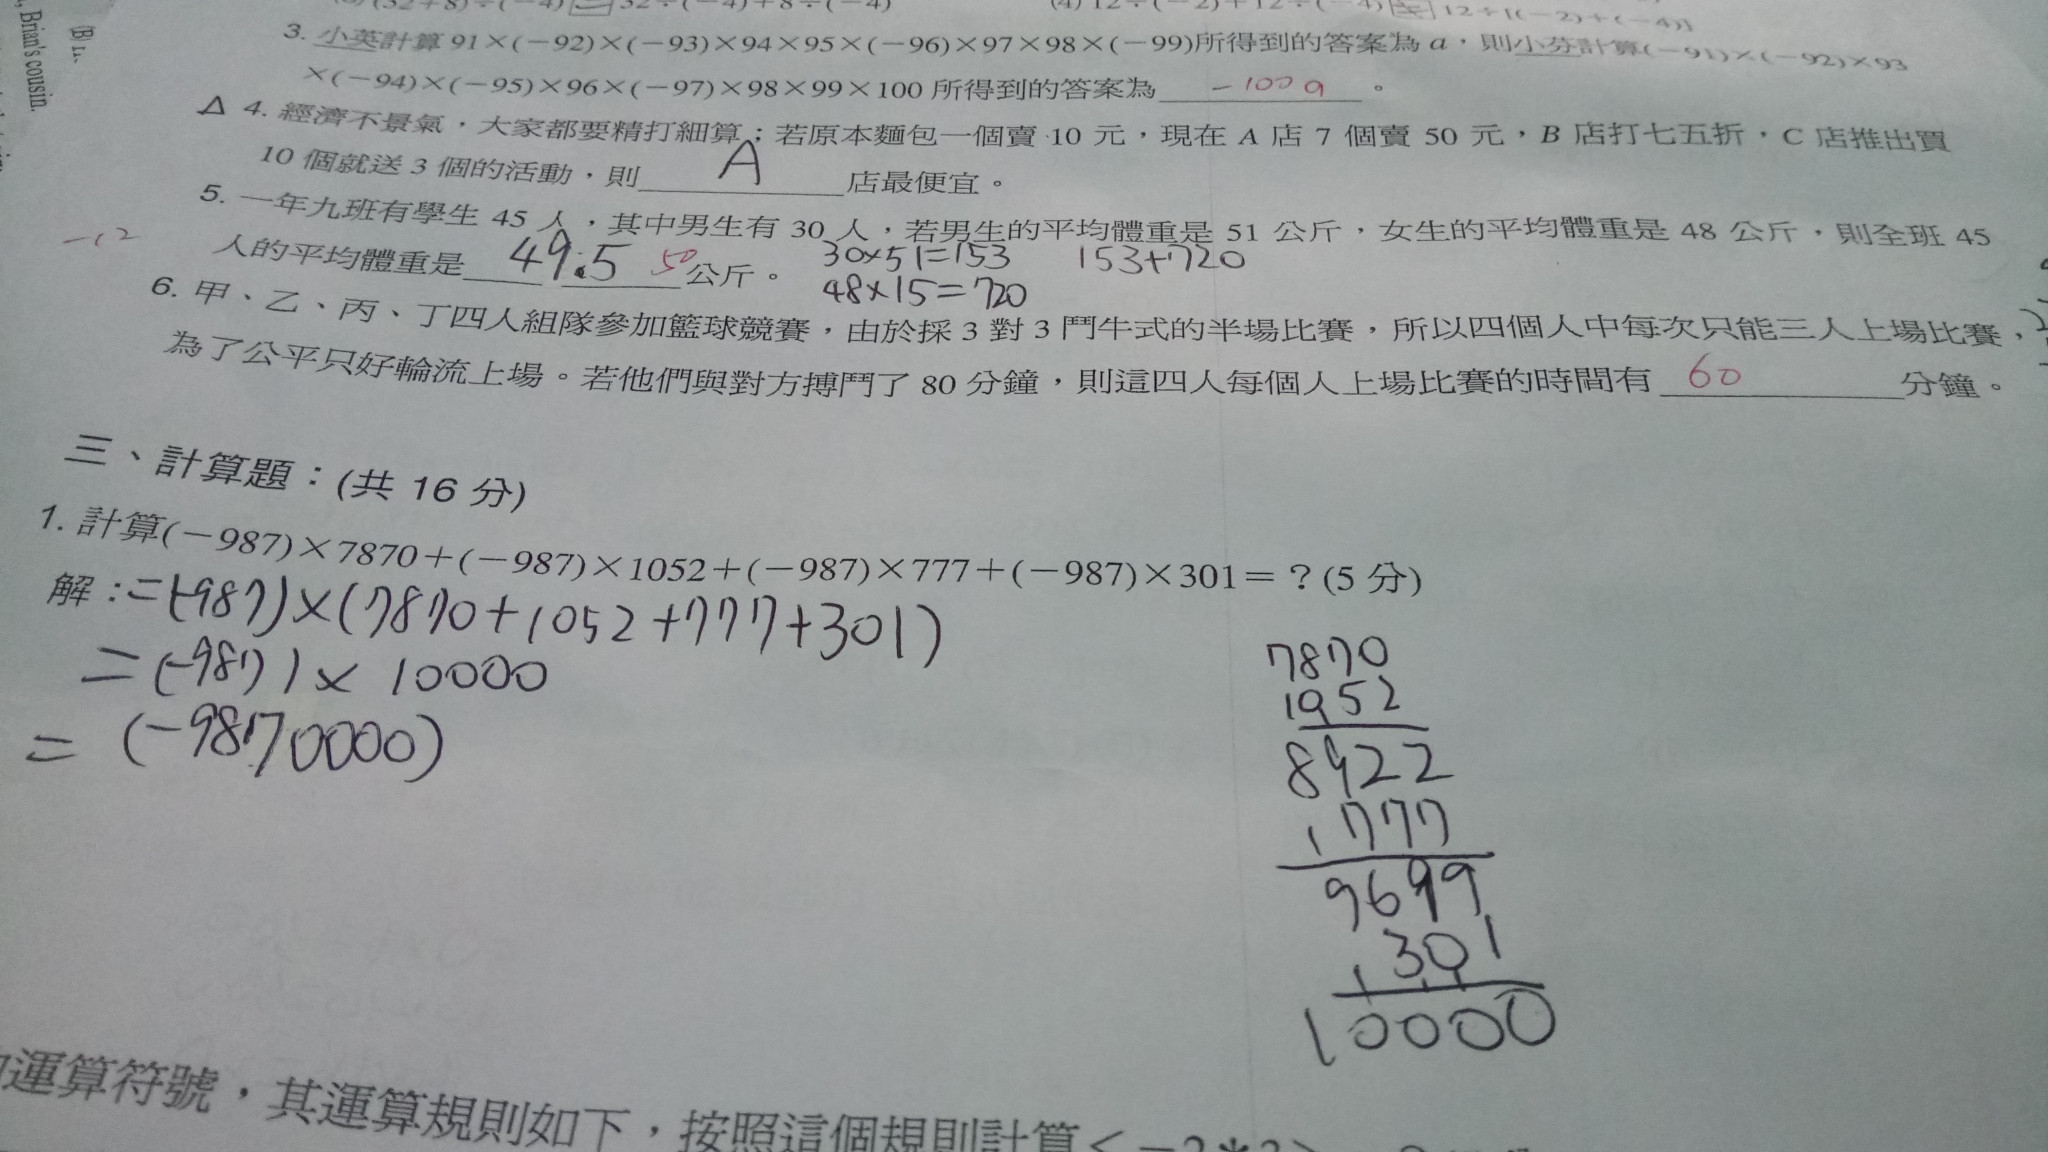 , Brian's cousin.
(3) (32+8)÷(-4) = 32÷(-4)+8÷(-4)
3. 小英計算 91×(-92)×(-93)×94×95×(-96)×97×98×(-99)所得到的答案為 a，則小芬計算(-91)×(-92)×93
×(-94)×(-95)×96×(-97)×98×99×100 所得到的答案為 -100a 。
△ 4. 經濟不景氣，大家都要精打細算；若原本麵包一個賣 10 元，現在 A 店 7 個賣 50 元，B 店打七五折，C 店推出買
10 個就送 3 個的活動，則 A 店最便宜。
5. 一年九班有學生 45 人，其中男生有 30 人，若男生的平均體重是 51 公斤，女生的平均體重是 48 公斤，則全班 45
-12
人的平均體重是 49.5 50 公斤。 30×51=153 153+720
48×15=720
6. 甲、乙、丙、丁四人組隊參加籃球競賽，由於採 3 對 3 鬥牛式的半場比賽，所以四個人中每次只能三人上場比賽，
為了公平只好輪流上場。若他們與對方搏鬥了 80 分鐘，則這四人每個人上場比賽的時間有 60 分鐘。
三、計算題：(共 16 分)
1. 計算(-987)×7870+(-987)×1052+(-987)×777+(-987)×301=？(5 分)
解：=(-987)×(7870+1052+777+301)
=(-987)×10000
=(-9870000)
7870
1052
8922
777
9699
301
10000
運算符號，其運算規則如下，按照這個規則計算